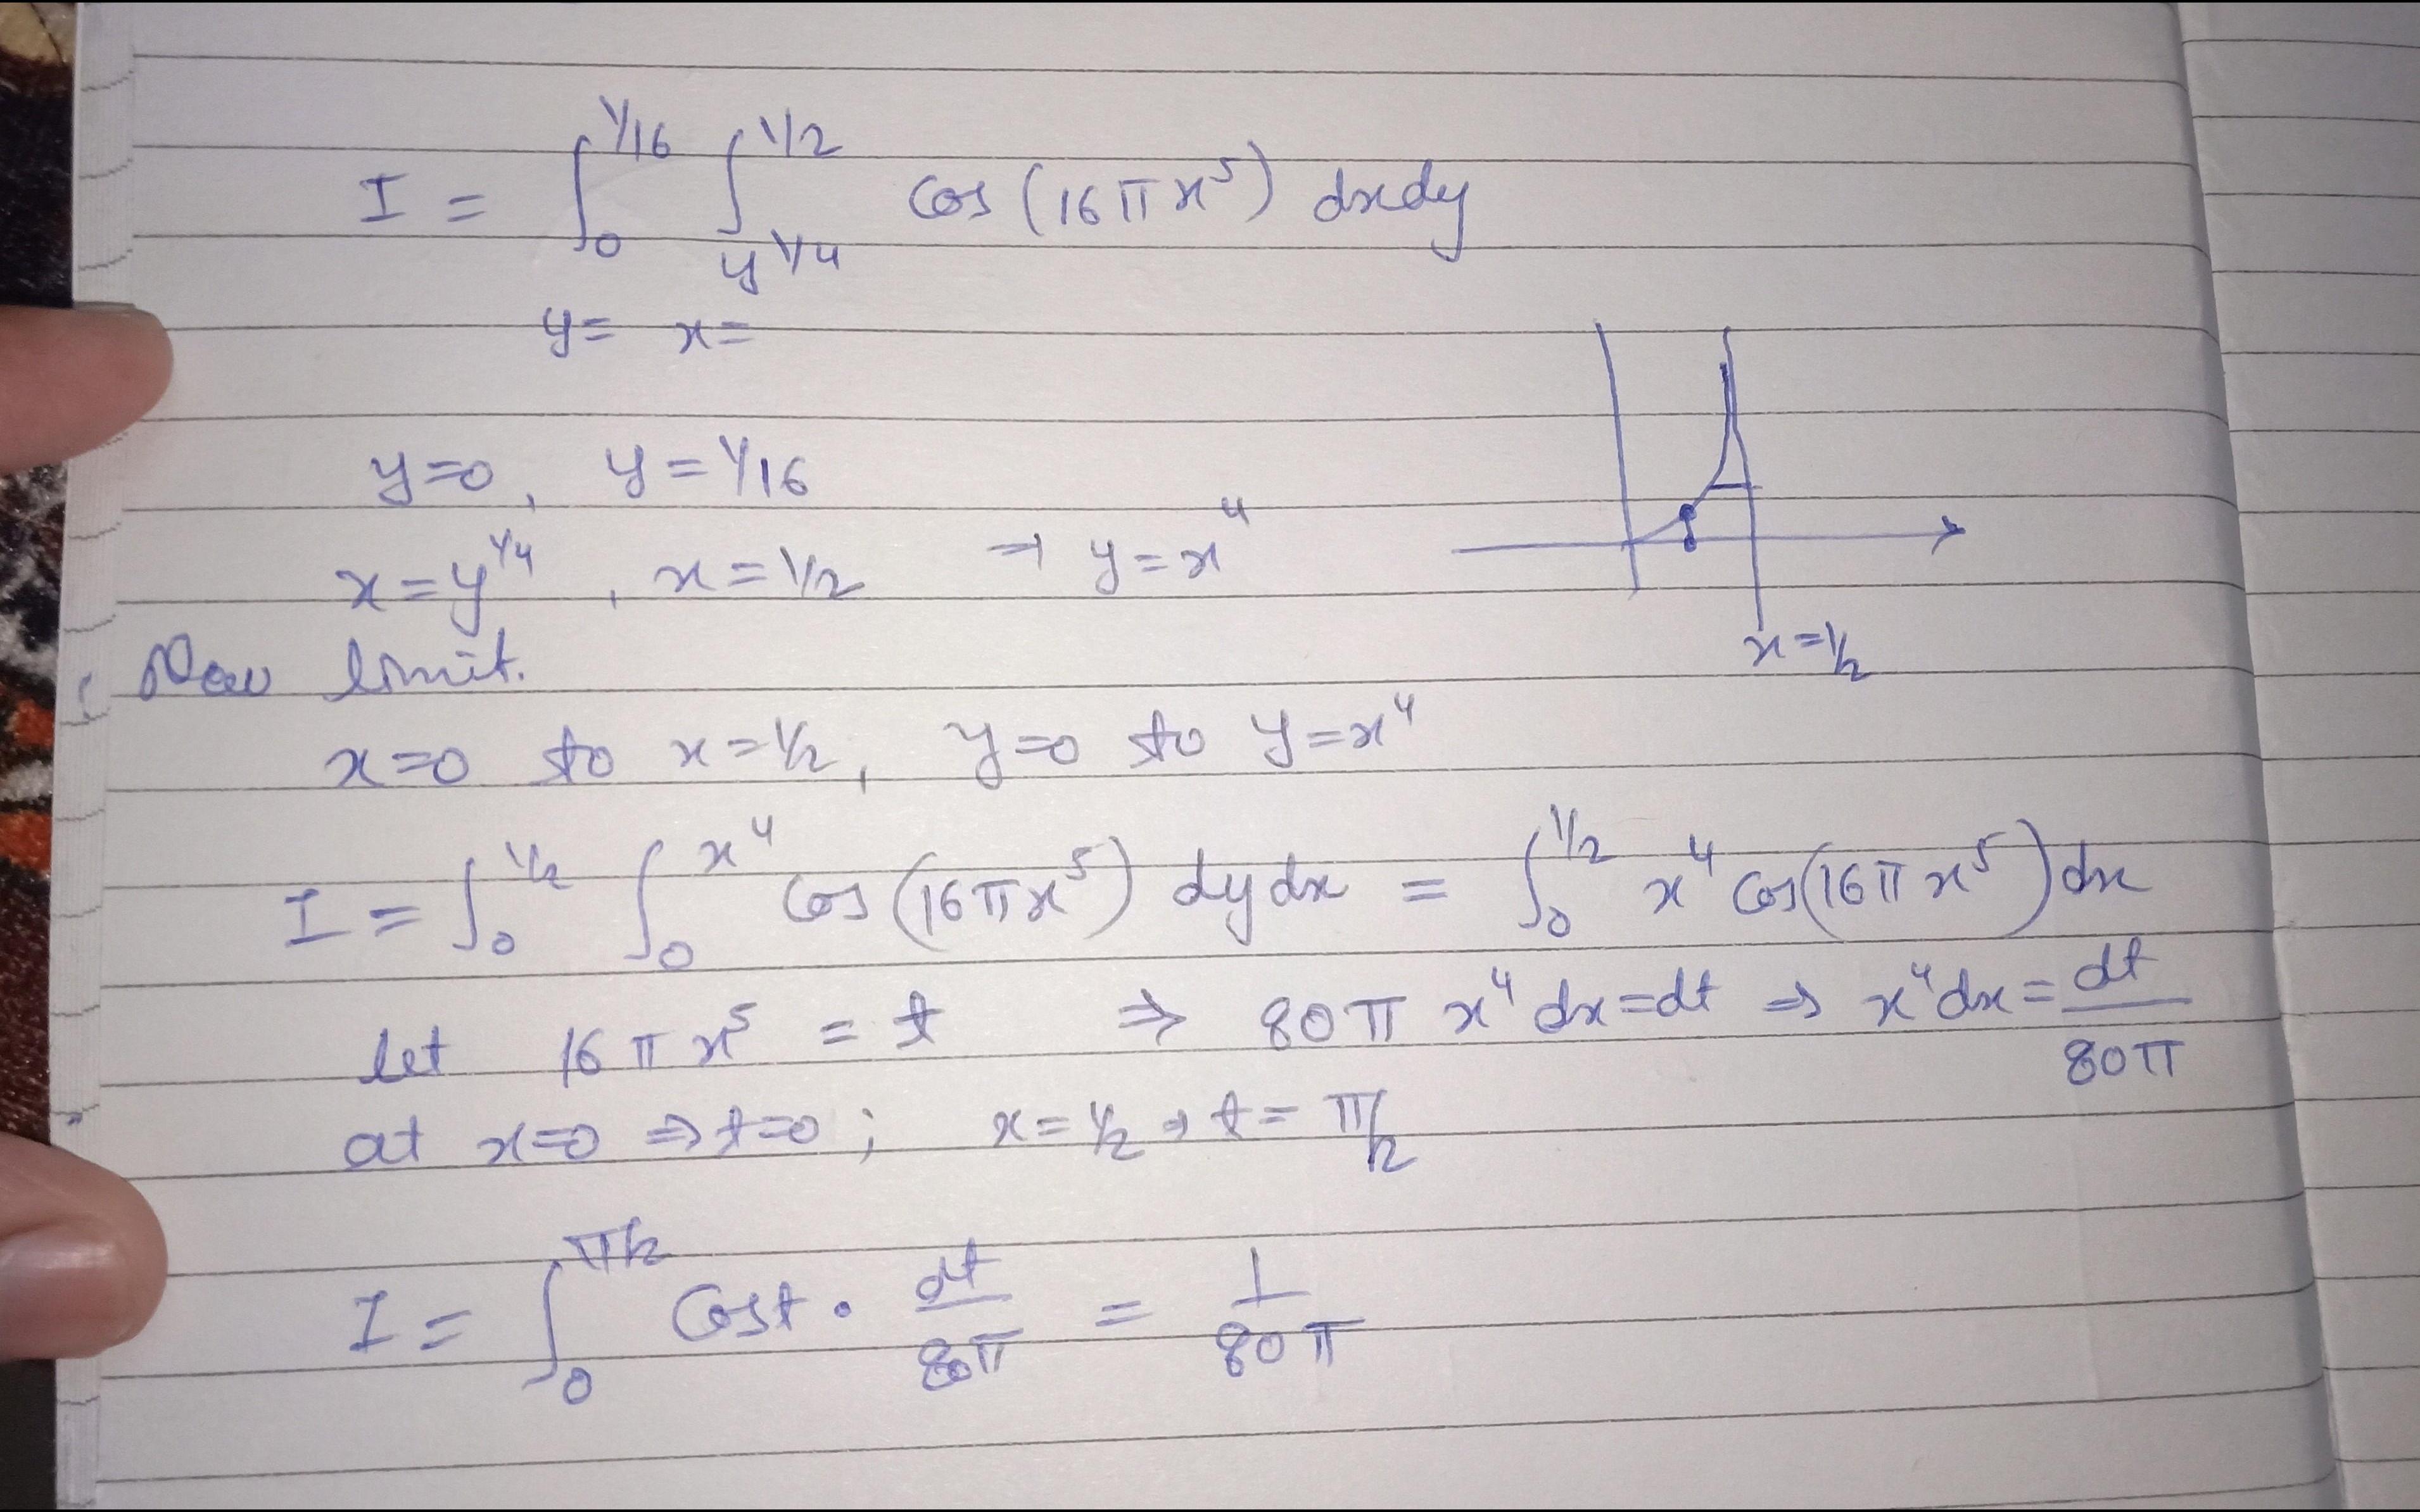 I = ∫₀^{1/16} ∫_{y^{1/4}}^{1/2} Cos (16πx⁵) dxdy
y= x=
y=0, y=1/16
x=y^{1/4}, x=1/2 ⇒ y=x⁴
x=1/2
Now limit.
x=0 to x=1/2, y=0 to y=x⁴
I = ∫₀^{1/2} ∫₀^{x⁴} Cos (16πx⁵) dydx = ∫₀^{1/2} x⁴ Cos(16πx⁵) dx
let 16πx⁵ = t ⇒ 80π x⁴ dx=dt ⇒ x⁴dx = dt/80π
at x=0 ⇒ t=0 ; x=1/2 ⇒ t= π/2
I = ∫₀^{π/2} Cost · dt/80π = 1/80π